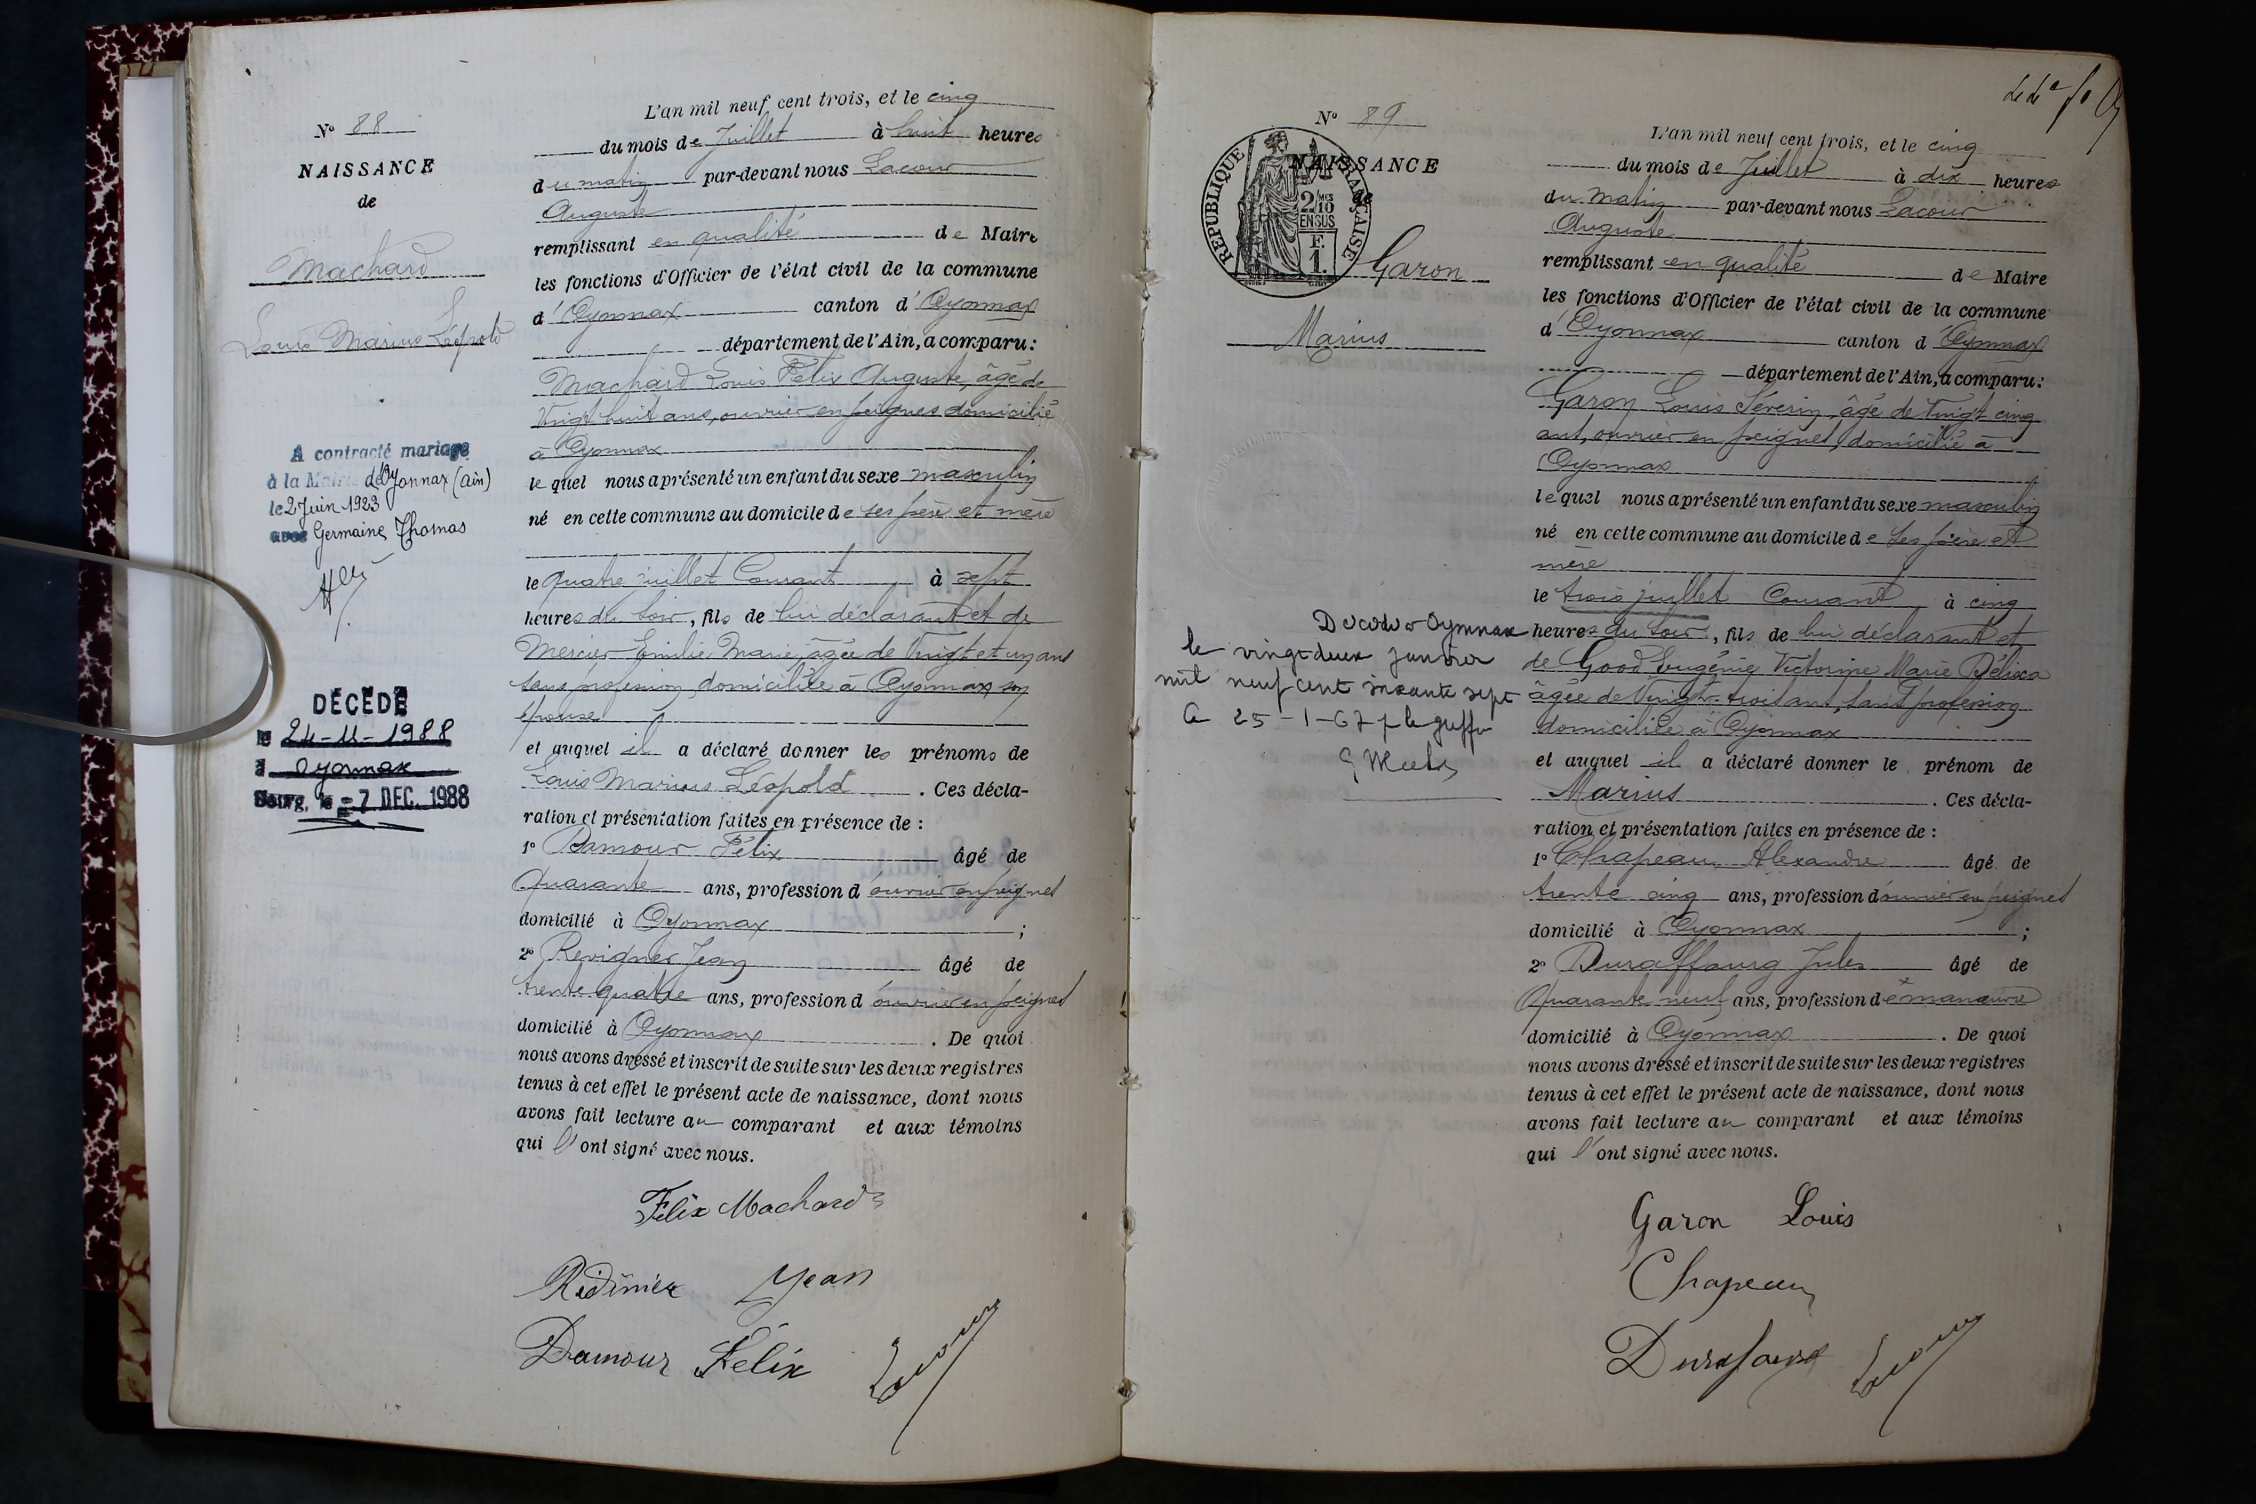 N° 88
NAISSANCE
de
Machard
Louis Marius Léopold
A contracté mariage
à la Mairie d'Oyonnax (Ain)
le 2 Juin 1923
avec Germaine Thomas
DÉCÉDÉ
le 24-11-1988
à Oyonnax
Bourg, le -7 DEC. 1988
L'an mil neuf cent trois, et le cinq
du mois de Juillet à huit heures
du matin par-devant nous Lacour
Auguste
remplissant en qualité de Maire
les fonctions d'Officier de l'état civil de la commune
d'Oyonnax canton d'Oyonnax
département de l'Ain, a comparu:
Machard Louis Félix Auguste, âgé de
Vingt huit ans, ouvrier en peignes domicilié
à Oyonnax
le quel nous a présenté un enfant du sexe masculin
né en cette commune au domicile de ses père et mère
le quatre juillet Courant à sept
heures du soir, fils de lui déclarant et de
Mercier Emilie Marie âgée de Vingt et un ans
sans profession, domiciliée à Oyonnax son
épouse
et auquel il a déclaré donner les prénoms de
Louis Marius Léopold . Ces décla-
ration et présentation faites en présence de :
1° Damour Félix âgé de
Quarante ans, profession d'ouvrier en peignes
domicilié à Oyonnax ;
2° Revigner Jean âgé de
trente quatre ans, profession d'ouvrier en peignes
domicilié à Oyonnax . De quoi
nous avons dressé et inscrit de suite sur les deux registres
tenus à cet effet le présent acte de naissance, dont nous
avons fait lecture au comparant et aux témoins
qui l'ont signé avec nous.
Félix Machard
Jean
Damour Félix
Lacour
N° 89
NAISSANCE
de
REPUBLIQUE FRANÇAISE
2/10 MES
EN SUS
F.
1.
Garon
Marius
Décédé à Oyonnax
le vingt deux janvier
mil neuf cent soixante sept
le 25-1-67 le greffier
L'an mil neuf cent trois, et le cinq
du mois de Juillet à dix heures
du matin par-devant nous Lacour
Auguste
remplissant en qualité de Maire
les fonctions d'Officier de l'état civil de la commune
d'Oyonnax canton d'Oyonnax
département de l'Ain, a comparu:
Garon Louis Séverin, âgé de Vingt cinq
ans, ouvrier en peignes, domicilié à
Oyonnax
le quel nous a présenté un enfant du sexe masculin
né en cette commune au domicile de ses père et
mère
le trois juillet Courant à cinq
heures du soir, fils de lui déclarant et
de Good Eugénie Victorine Marie Délisca
âgée de Vingt-trois ans, sans profession
domiciliée à Oyonnax
et auquel il a déclaré donner le prénom de
Marius . Ces décla-
ration et présentation faites en présence de :
1° Chapeau Alexandre âgé de
trente cinq ans, profession d'ouvrier en peignes
domicilié à Oyonnax ;
2° Duraffourg Jules âgé de
Quarante neuf ans, profession de manœuvre
domicilié à Oyonnax . De quoi
nous avons dressé et inscrit de suite sur les deux registres
tenus à cet effet le présent acte de naissance, dont nous
avons fait lecture au comparant et aux témoins
qui l'ont signé avec nous.
Garon Louis
Chapeau
Lacour